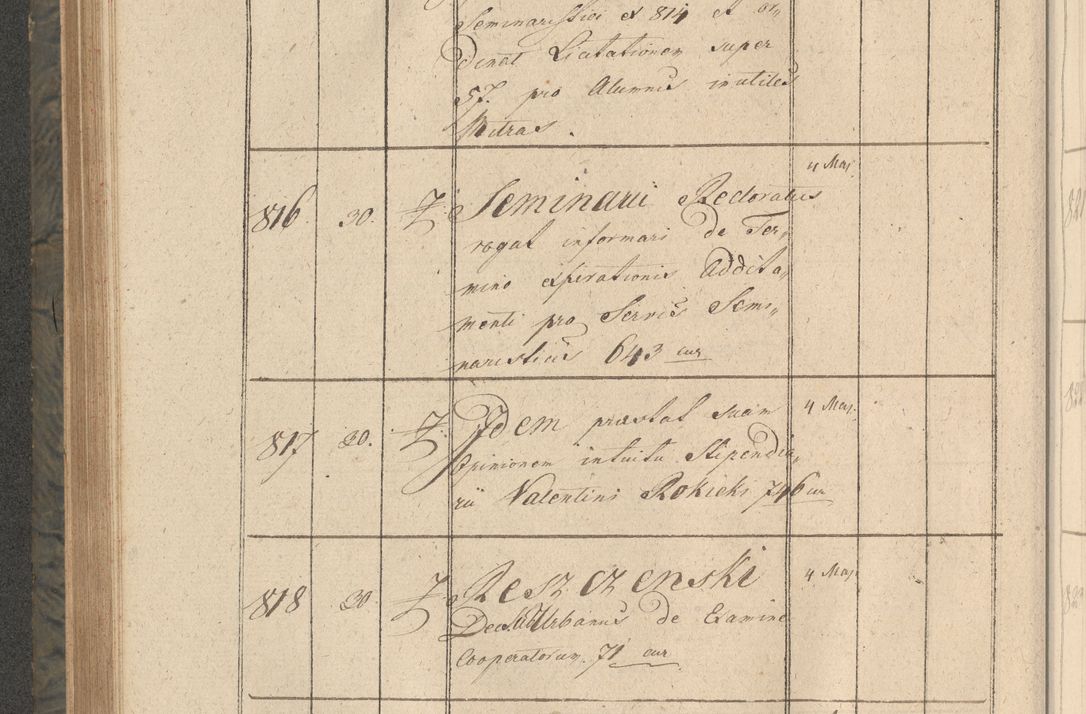 Seminaristici et 814 et or„
dinat Licitationem super
57. pro Alumnis inutiles
Mitras.
4 Maj.
816 30. Z. Seminarii Rectoratus
rogat informari de Ter„
mino expirationis Addita„
menti pro Servis Semi„
naristicis 643 cur
4 Maj.
817 20. Z. Idem praestat suam
Opinionem intuitu Stipendia„
rii Valentini Rokicki 746 cur
4 Maj.
818 30. Z. Reszczenski
Urbanus de Examine
Cooperatorum. 71 cur